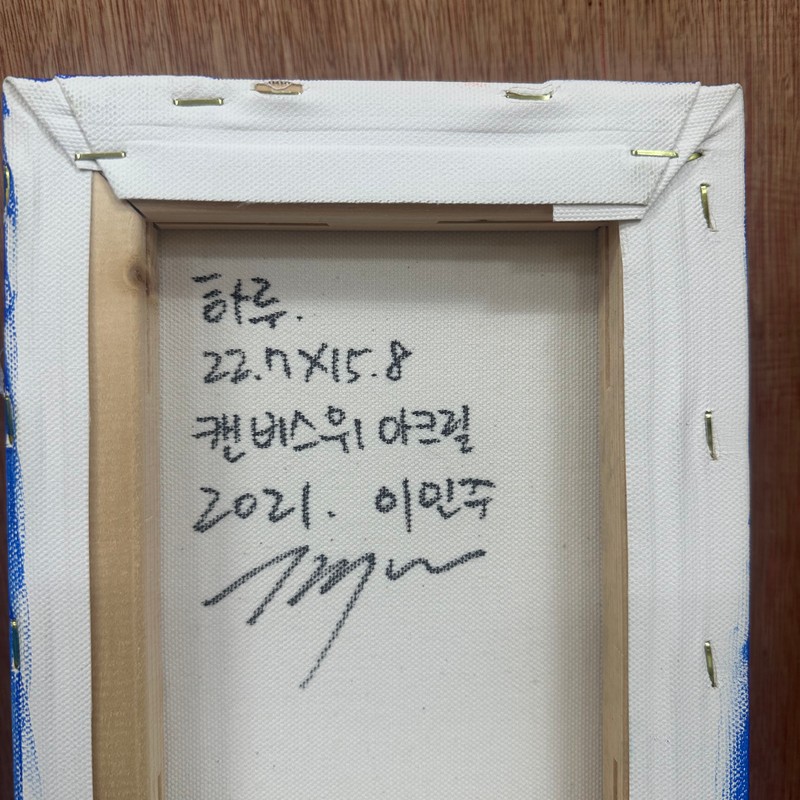 하루.
22.7X15.8
캔버스위 아크릴
2021. 이민주